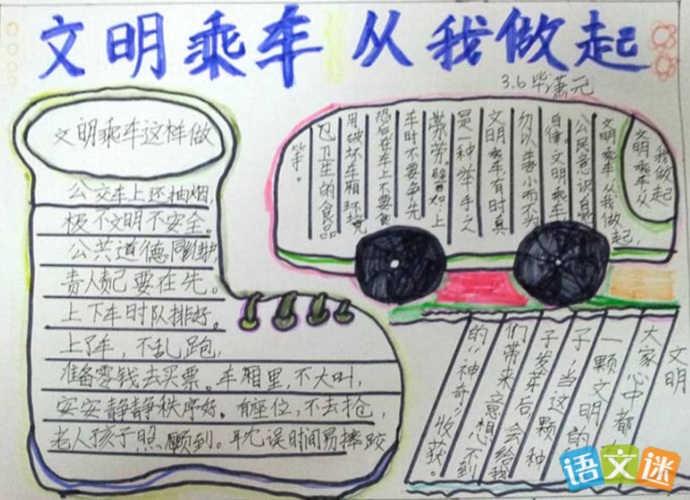 文明乘车 从我做起
3.6 毕潇元
文明乘车这样做
公交车上还抽烟,
极不文明不安全。
公共道德同维护,
责人责己要在先。
上下车时队排好。
上了车,不乱跑,
准备零钱去买票。车厢里,不大叫,
安安静静秩序好。有座位,不去抢,
老人孩子照顾到。耽误时间易摔跤
我做起
文明乘车从
文明乘车从我做起,
公民意识自
自律。文明乘车
勿以善小而不为
文明乘车有时真
是一种举手之
劳劳譬如:上
车时不要争先
恐后在车上不要食
用破坏车厢环境
卫卫生的食品
等。
文明
大家心中都
一颗文明的
子,当这颗种
子发芽后会给我
们带来意想不到
的“神奇”收获。
语文迷